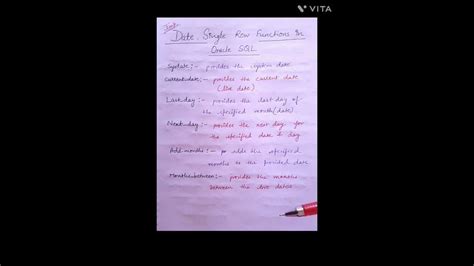 VITA
Date Single Row Functions in
Oracle SQL
Sysdate:- provides the system date
Current-date:- provides the current date
(live date)
Last-day:- provides the last day of
the specified month(date)
Next-day:- provides the next day for
the specified date & day
Add-months:- adds the specified
months to the provided date
Months-between:- provides the months
between the two dates